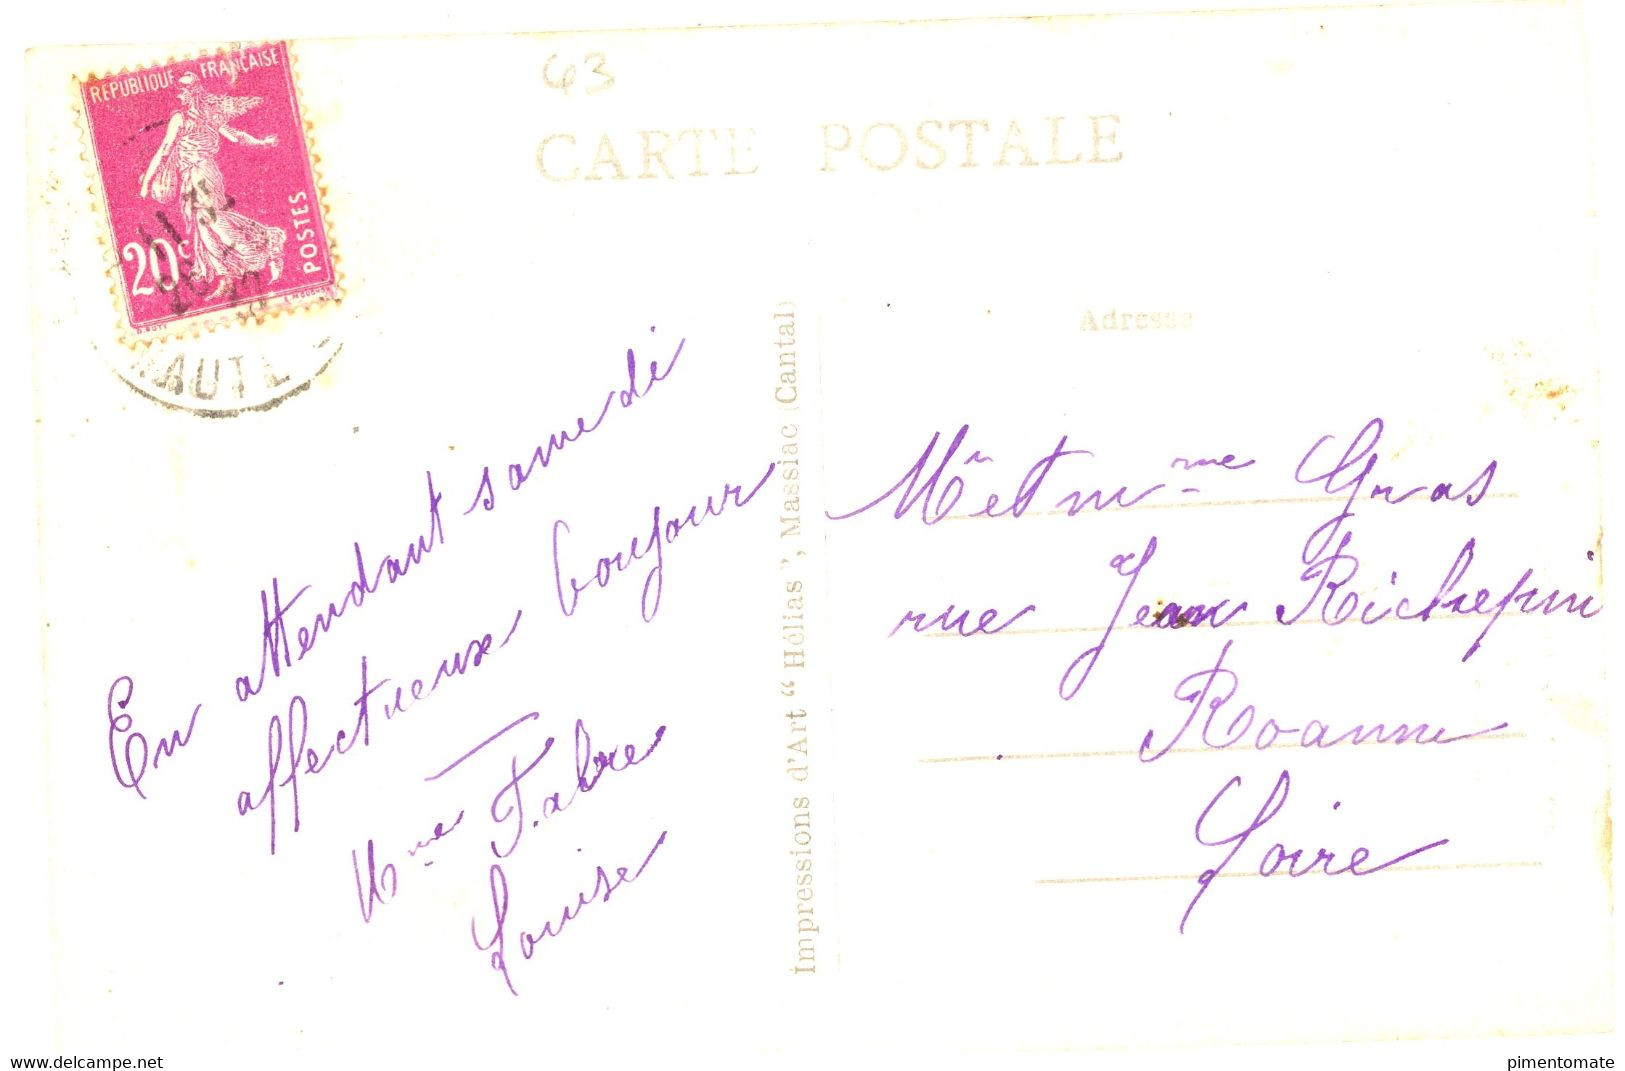 43
CARTE POSTALE
RÉPUBLIQUE FRANÇAISE
20c
POSTES
11 32
HAUTE
En attendant samedi
affectueux bonjour
Mme Fabre
Louise
Impressions d'Art “Hélias”, Massiac (Cantal)
Adresse
Mr et Mme Gras
rue Jean Richepin
Roanne
Loire
www.delcampe.net
pimentomate